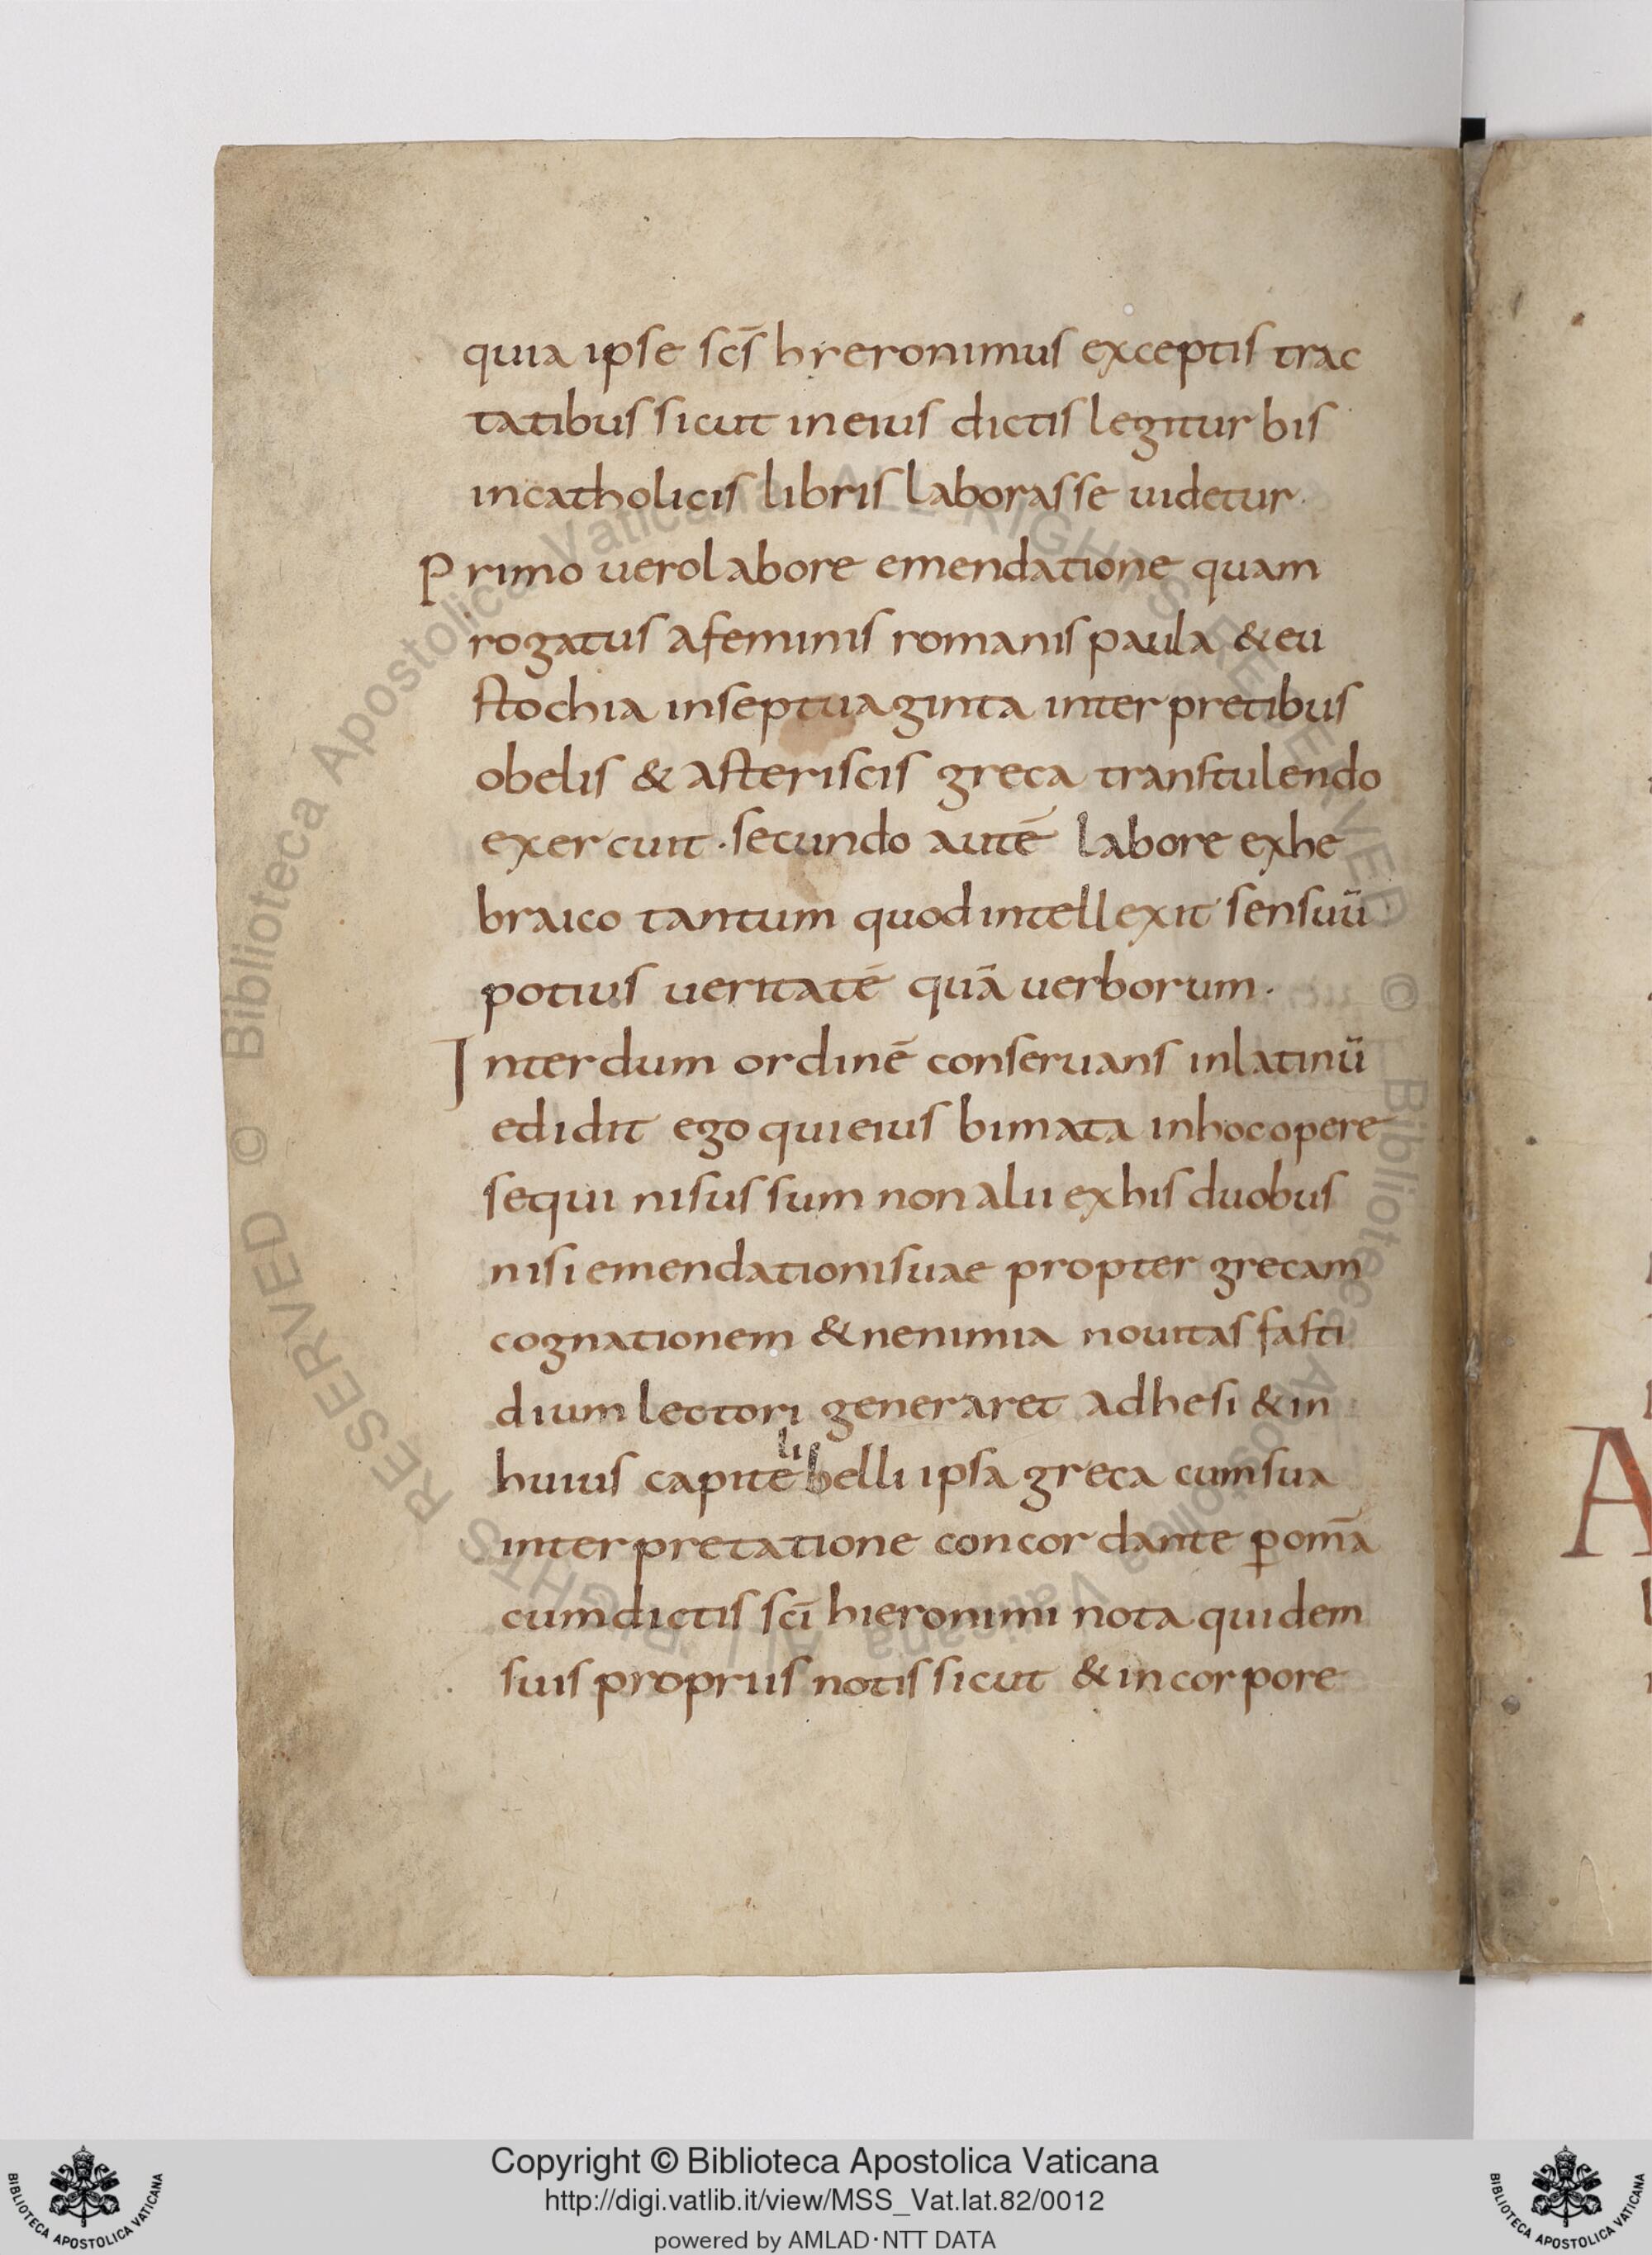 quia ipse scs̄ hieronimus exceptis trac
tatibus sicut in eius dictis legitur bis
in catholicis libris laborasse uidetur.
Primo uero labore emendatione quam
rogatus a feminis romanis paula & eu
stochia in septuaginta interpretibus
obelis & asteriscis greca transtulendo
exercuit · secundo autē labore exhe
braico tantum quod intellexit sensuū
potius ueritatē quā uerborum ·
Interdum ordinē conseruans in latinū
edidit ego qui eius bimata in hoc opere
sequi nisus sum non alii ex his duobus
nisi emendationi suae propter grecam
cognationem & ne nimia nouitas fasti
dium lectori generaret adhesi & in
huius capite libelli ipsa greca cum sua
interpretatione concordante ꝑ om̄a
cum dictis scī hieronimi nota quidem
suis propriis notis sicut & in corpore
Copyright © Biblioteca Apostolica Vaticana
http://digi.vatlib.it/view/MSS_Vat.lat.82/0012
powered by AMLAD·NTT DATA
BIBLIOTECA APOSTOLICA VATICANA
BIBLIOTECA APOSTOLICA VATICANA
© Biblioteca Apostolica Vaticana ALL RIGHTS RESERVED
© Biblioteca Apostolica Vaticana ALL RIGHTS RESERVED
A